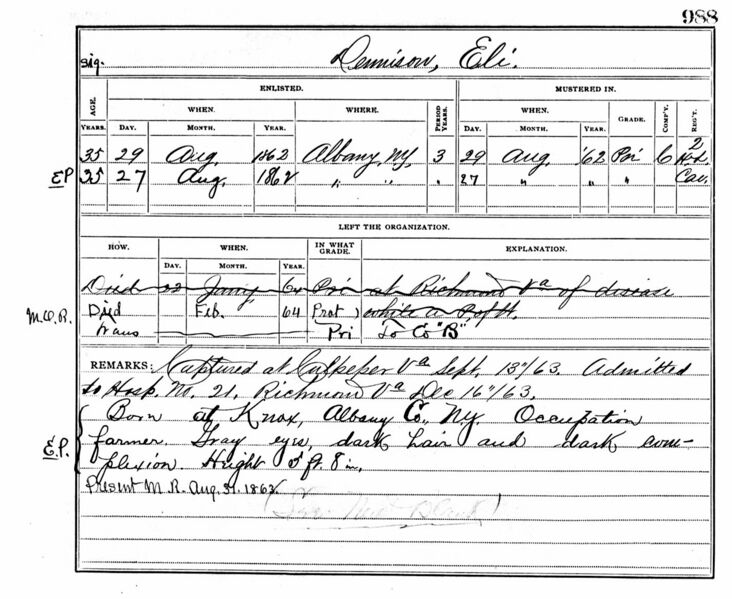 988
sig. Dennison, Eli.
ENLISTED. MUSTERED IN.
AGE. WHEN. WHERE. PERIOD YEARS. WHEN. GRADE. COMP'Y. REG'T.
YEARS. DAY. MONTH. YEAR. DAY. MONTH. YEAR.
35 29 Aug. 1862 Albany, N.Y. 3 29 Aug. '62 Pri C 2
E.P. 35 27 Aug. 1862 " " " 27 " " " Cav.
LEFT THE ORGANIZATION.
HOW. WHEN. IN WHAT GRADE. EXPLANATION.
DAY. MONTH. YEAR.
Died 22 Jany 64 Pri at Richmond Va of disease
M.O.R. Died Feb. 64 while a P of W.
Trans Pri To Co "B"
REMARKS: Captured at Culpeper Va Sept. 13"/63. Admitted
to Hosp. No. 21, Richmond Va Dec 16"/63.
Born at Knox, Albany Co., N.Y. Occupation
E.P. farmer. Gray eyes, dark hair and dark com-
plexion. Height 5 ft. 8 in.
Present M.R. Aug. 31. 1862